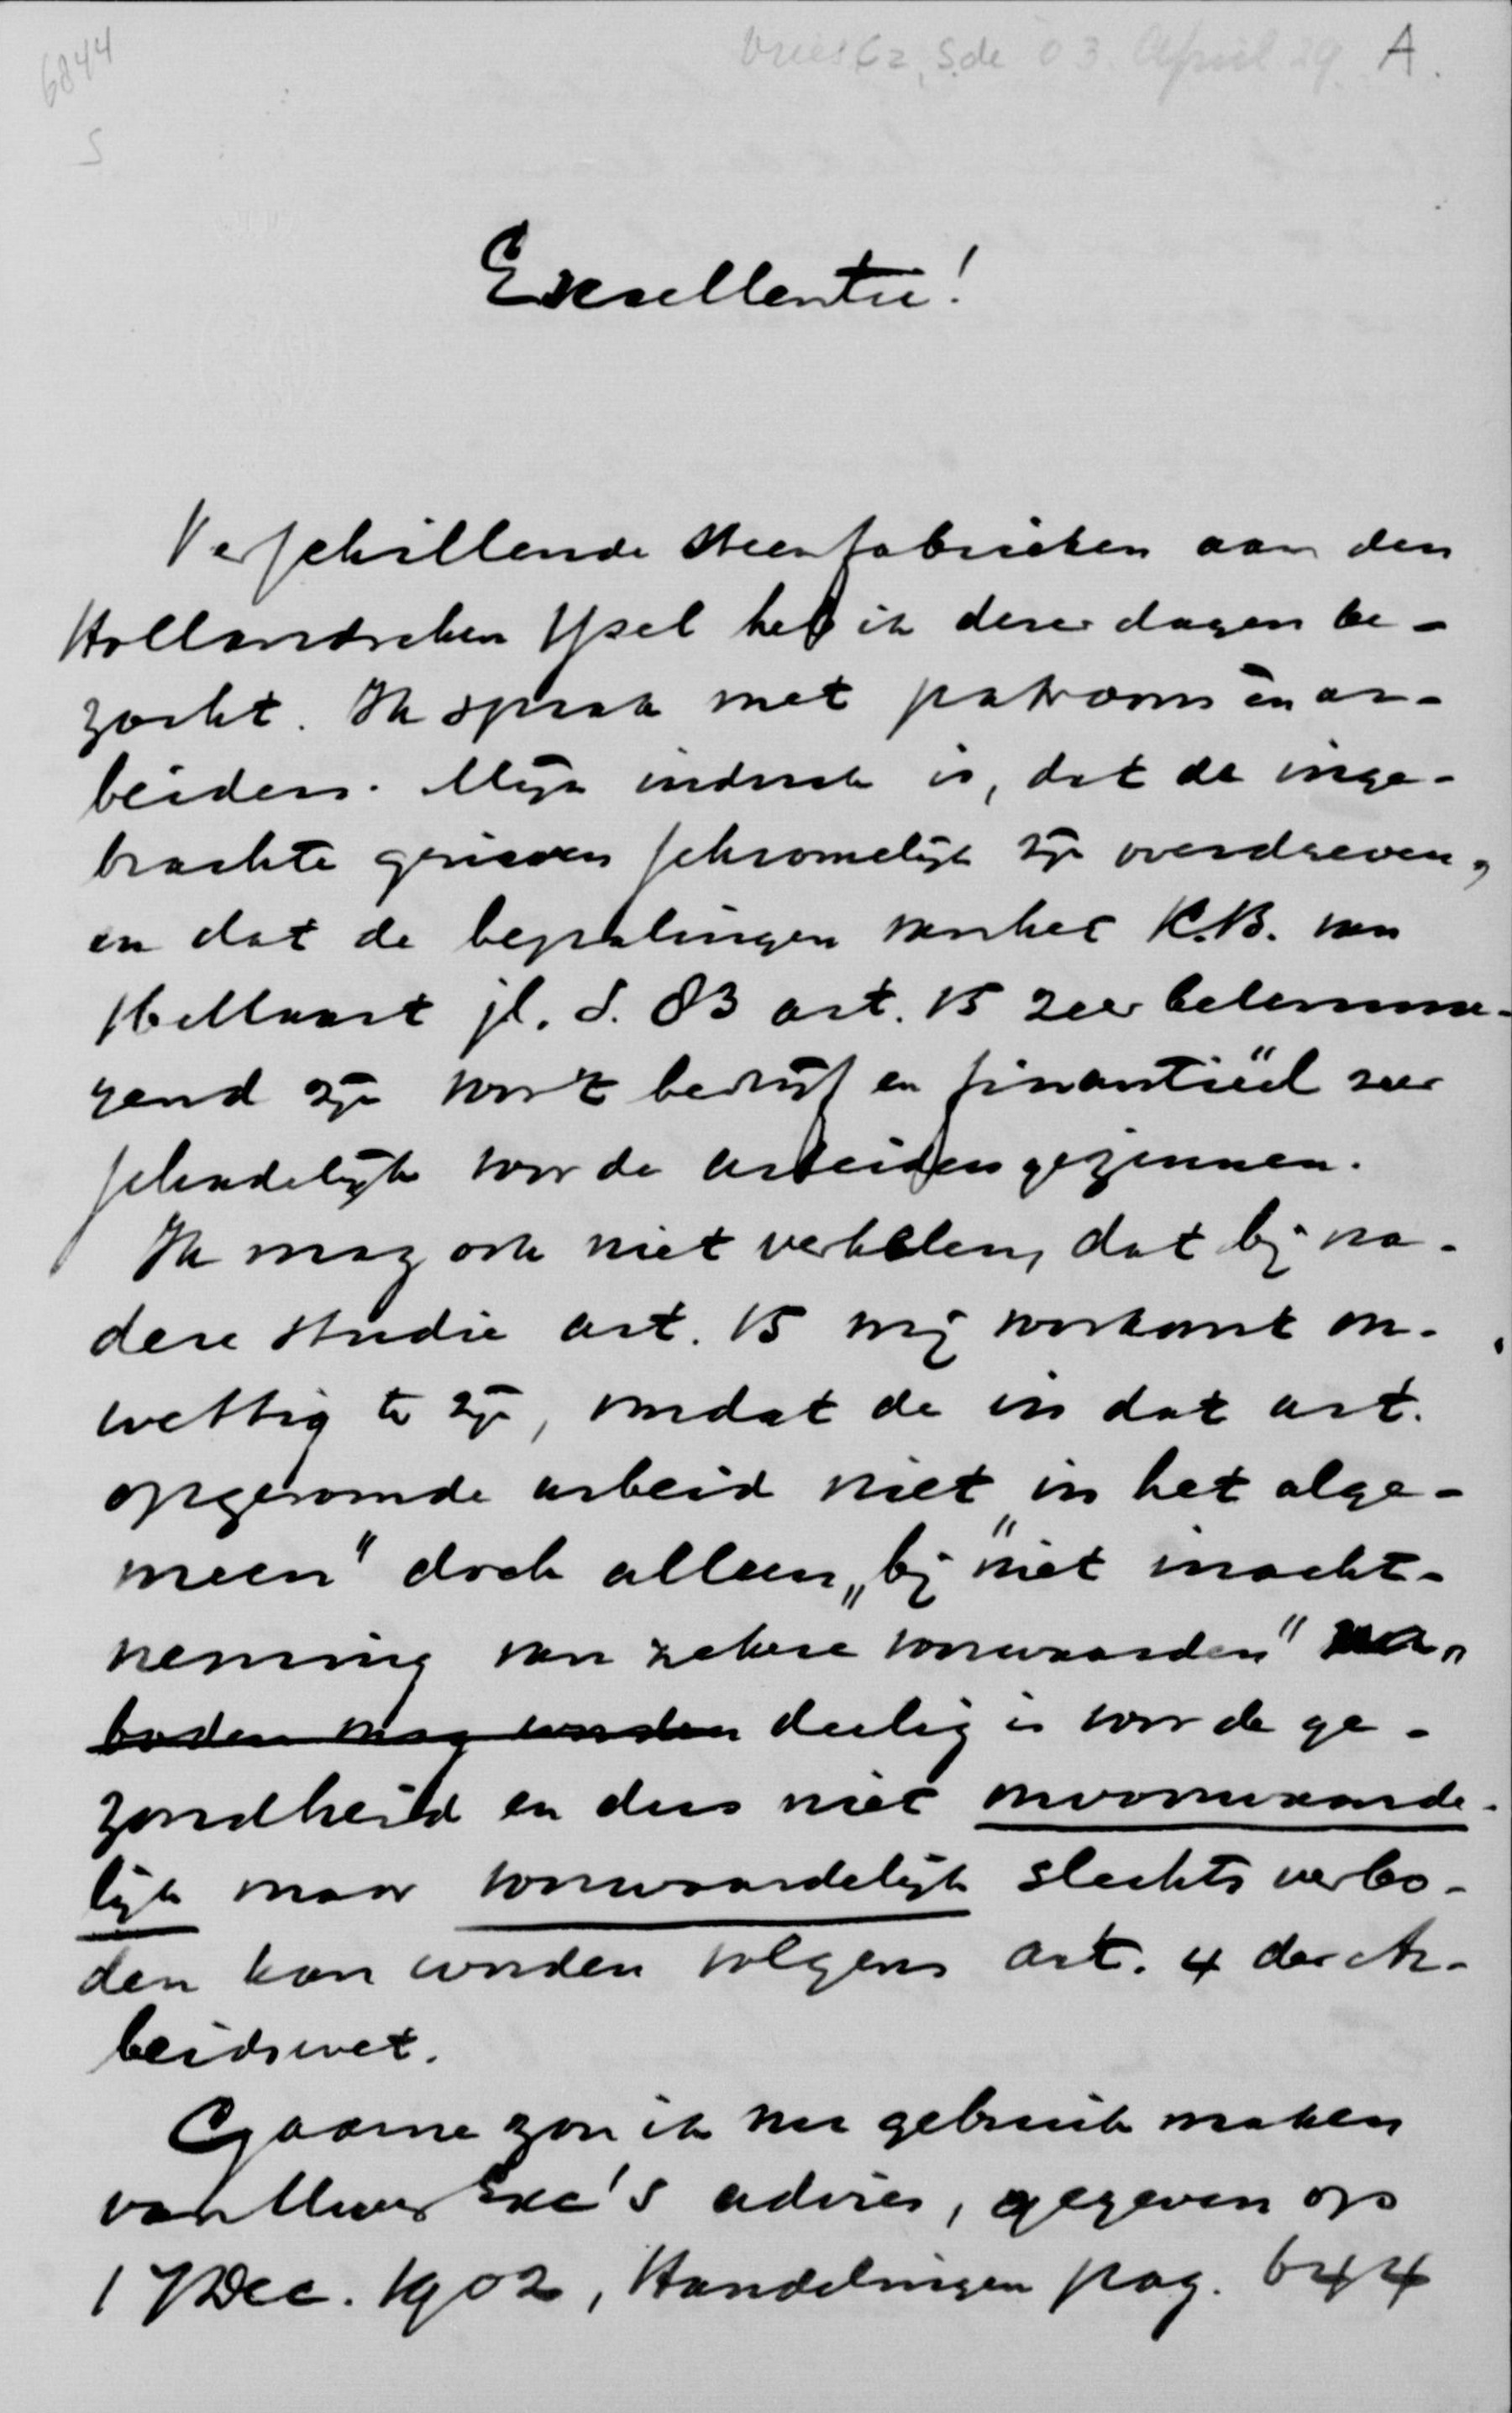 6844
Vries Cz, S. de 03 April 29 A.
5
Excellentie!
Verschillende steenfabrieken aan den
Hollandschen IJsel heb ik dezer dagen be-
zocht. Ik sprak met patroons én ar-
beiders. Mijn indruk is, dat de inge-
brachte grieven schromelijk zijn overdreven,
en dat de bepalingen van het K.B. van
Maart jl. S. 83 art. 15 zeer belemme-
rend zijn voor 't bedrijf en finantiëel zeer
schadelijk voor de arbeidersgezinnen.
Ik mag ook niet verhelen, dat bij na-
dere studie art. 15 mij voorkomt on-
wettig te zijn, omdat de in dat art.
opgenoemde arbeid niet „in het alge-
meen" doch alleen „bij niet inacht-
neming van zekere voorwaarden" na-
boden mag worden deelig is voor de ge-
zondheid en dus niet onvoorwaarde-
lijk maar voorwaardelijk slechts verbo-
den kan worden volgens art. 4 der Ar-
beidswet.
Gaarne zou ik nu gebruik maken
van Uwer Exc's advies, gegeven op
17 Dec. 1902, Handelingen pag. 644